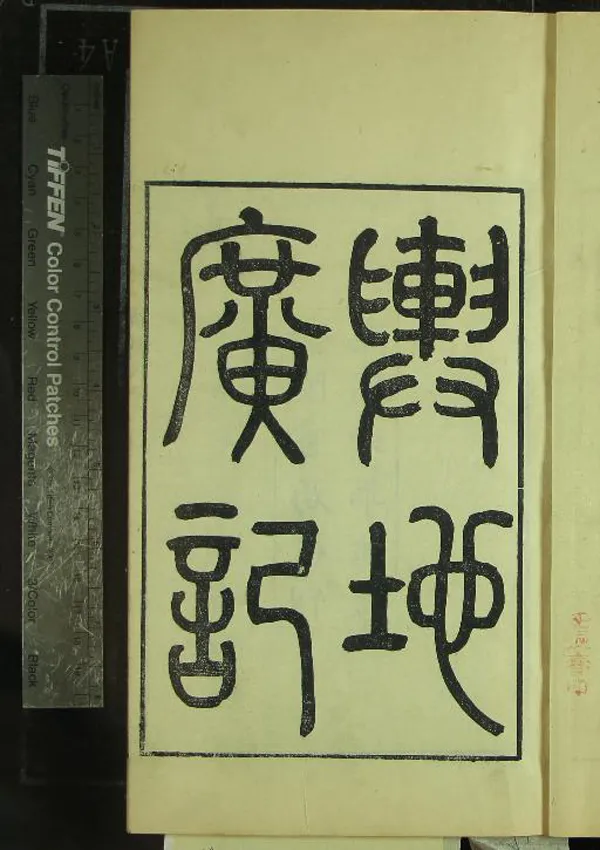 輿地
廣記
TIFFEN Color Control Patches
Blue Cyan Green Yellow Red Magenta White 3/Color Black